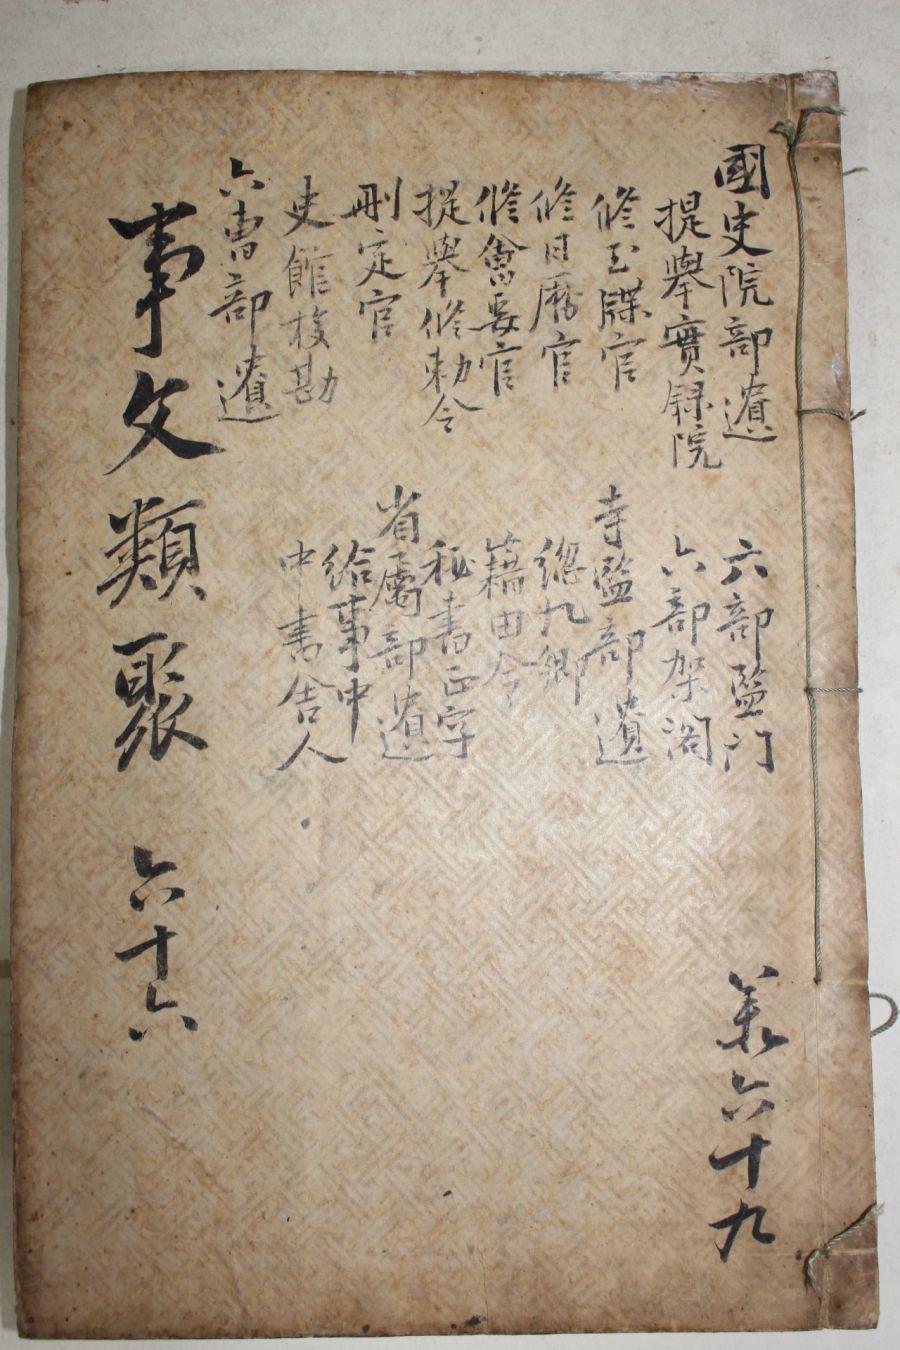 國史院部遺
提舉實錄院
修玉牒官
修日曆官
修會要官
提舉修勅令
刪定官
史館校勘
六曹部遺
六部監門
六部架閣
寺監部遺
總九卿
籍田令
秘書正字
省屬部遺
給事中
中書舍人
事文類聚 六十六
六十九